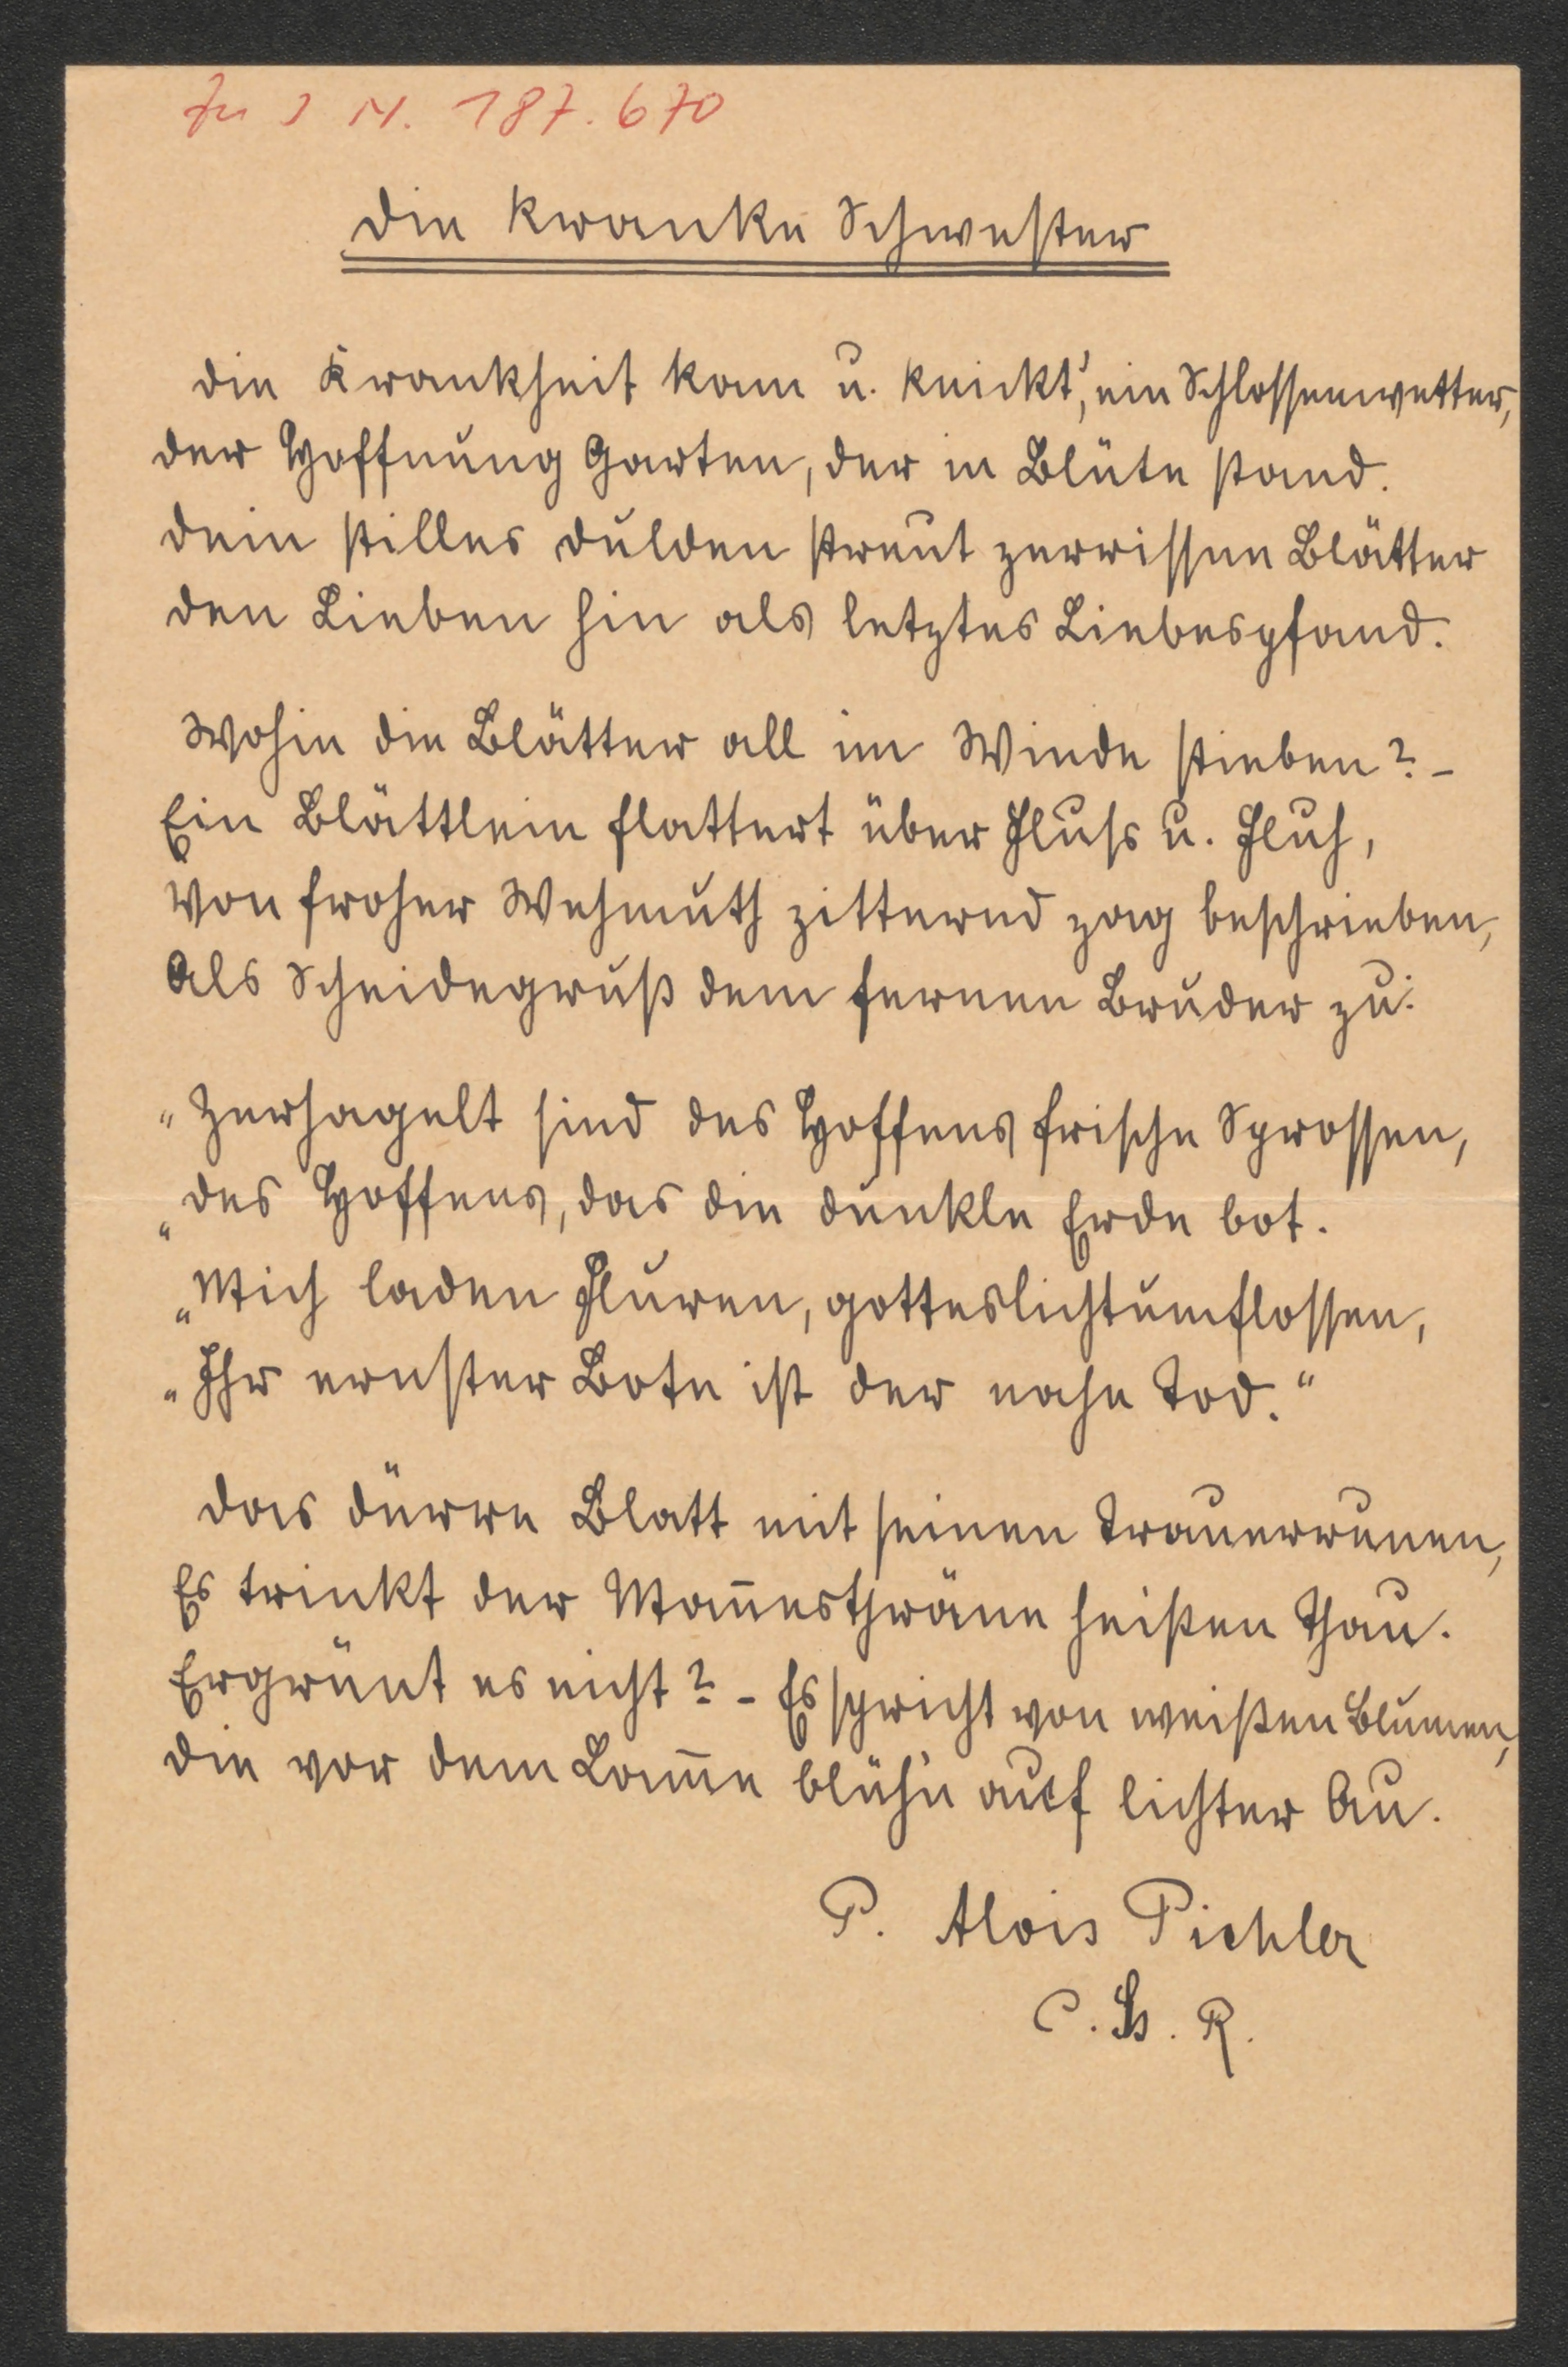 Zu I N. 187.670
Die kranke Schwester
Die Krankheit kam u. knickt', ein Schlossenwetter,
Der Hoffnung Garten, der in Blüte stand.
Dein stilles Dulden streut zerrissne Blätter
Den Lieben hin als letztes Liebespfand.
Wohin die Blätter all im Winde stieben? –
Ein Blättlein flattert über Fluss u. Fluh,
Von froher Wehmuth zitternd zag beschrieben,
Als Scheidegruß dem fernen Bruder zu:
„Zerhagelt sind des Hoffens frische Sprossen,
„Des Hoffens, das die dunkle Erde bot.
„Mich laden Fluren, gotteslichtumflossen,
„Ihr ernster Bote ist der nahe Tod.“
Das dürre Blatt mit seinen Trauerrunen,
Es trinkt der Man̄esthräne heißen Thau.
Ergrünt es nicht? – Es spricht von weißen Blumen,
Die vor dem Lam̄e blüh'n auf lichter Au.
P. Alois Pichler
C. Ss. R.